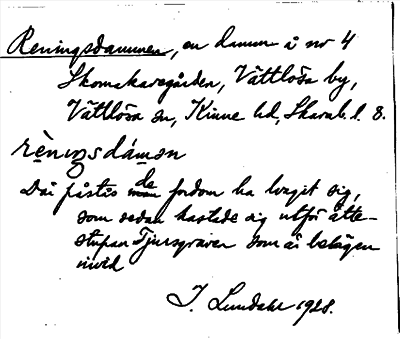 Reningsdammen, en damm å nr 4
Skomakaregården, Vättlösa by,
Vättlösa sn, Kinne hd, Skarab. l. 8.
rèniŋsdámən
Där påstås de fordom ha tvagit sig,
som sedan kastade sig utför ätte-
stupan Tjursgraven som är belägen
invid
J. Lundahl 1928.